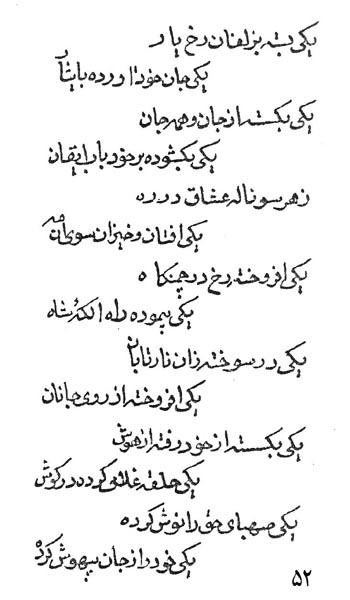 یکی بسته بزلفتان رخ یار
یکی جان خود آورده بایثار
یکی بگسسته از جان و همه جان
یکی بگشوده بر خود باب ایقان
ز هر سو ناله عشاق در ره
یکی افتان و خیزان سوی آن مه
یکی افروخته رخ در چمنگاه
یکی پیموده راه الکه شاه
یکی در سوخته زان نار تابان
یکی افروخته از روی جانان
یکی بگسسته از خود رفته از هوش
یکی حلقه غلامی کرده در گوش
یکی صهبای حق را نوش کرده
یکی خود را ز جان بیهوش کرده
۵۲